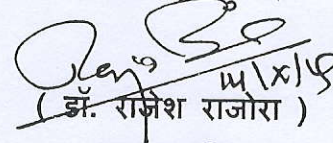 14/X/15
( डॉ. राजेश राजोरा )